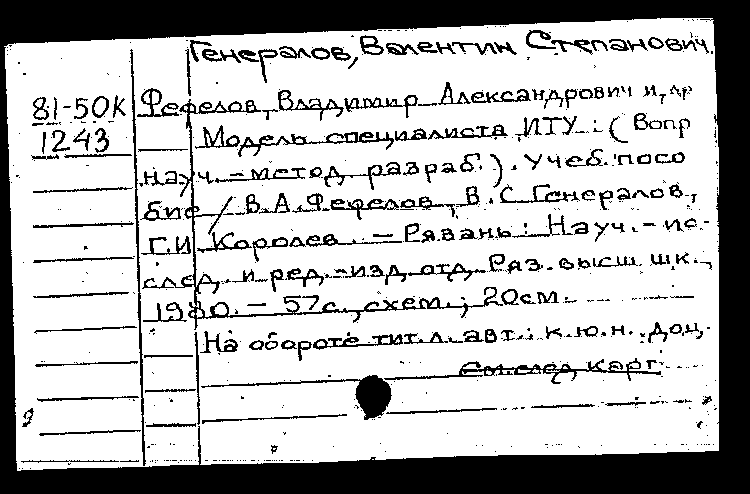 Генералов, Валентин Степанович.
81-50К Фефелов, Владимир Александрович и др
1243 Модель специалиста ИТУ: (Вопр
науч.-метод. разраб.). Учеб. посо
бие / В.А. Фефелов, В.С. Генералов,
Г.И. Королев. - Рязань: Науч.-ис-
след. и ред.-изд. отд. Ряз. высш. шк.,
1980. - 57с., схем.; 20см.
На обороте тит. л. авт.: к.ю.н. доц.
См. след. карт.